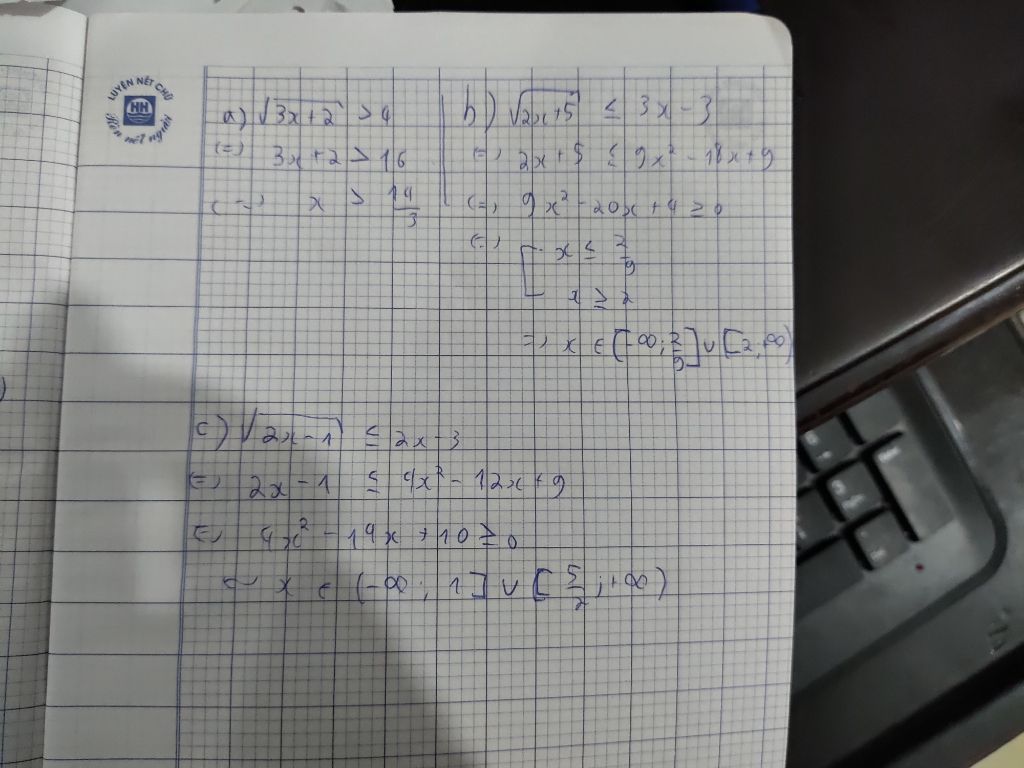 LUYỆN NÉT CHỮ
HH
Rèn nết người
a) √(3x+2) > 4
(=) 3x+2 > 16
(=) x > 14/3
b) √(2x+5) ≤ 3x - 3
(=) 2x + 5 ≤ 9x² - 18x + 9
(=) 9x² - 20x + 4 ≥ 0
(=) [ x ≤ 2/9
x ≥ 2
=) x ∈ [-∞; 2/9] ∪ [2; ∞)
c) √(2x-1) ≤ 2x - 3
(=) 2x - 1 ≤ 4x² - 12x + 9
(=) 4x² - 14x + 10 ≥ 0
(=) x ∈ (-∞; 1] ∪ [5/2; +∞)